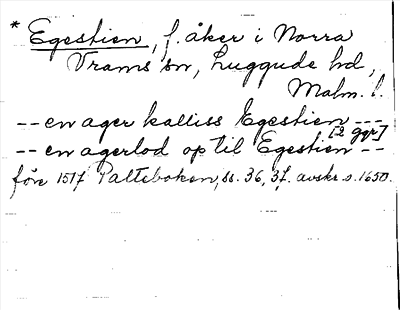 * Egestien, f. åker i Norra
Vrams sn, Luggude hd,
Malm. l.
-- en ager kalliss Egestien ---
[2 ggr]
-- en agerlod op til Egestien --
före 1517 Paltebokon, ss. 36, 37. avskr. o. 1650.